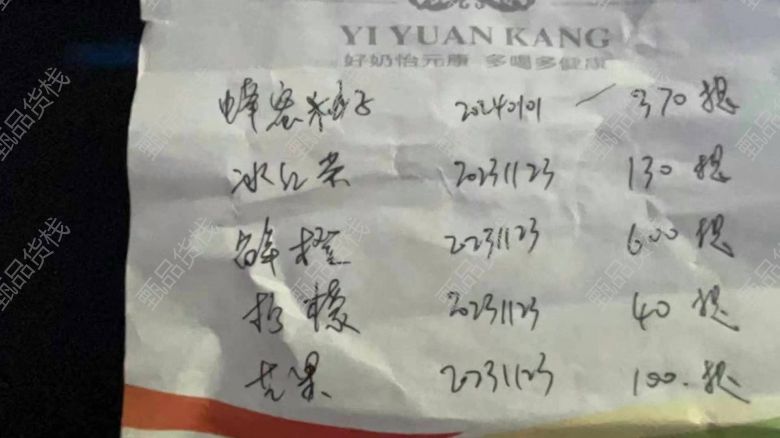 YI YUAN KANG
好奶怡元康 多喝多健康
蜂蜜柚子 20240101 370提
冰红茶 20231123 130提
鲜橙 20231123 600提
柠檬 20231123 40提
芒果 20231123 100.提
甄品货栈